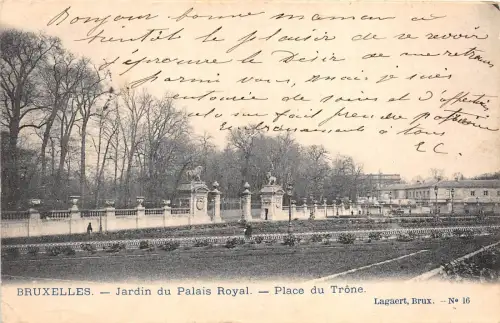 Bonjour bonne maman à
bientôt le plaisir de se revoir
j'éprouve le désir de me retrouver
parmi vous, mais je suis
entourée de soins et d'affection
Embrassements à tous
E.C.
BRUXELLES. — Jardin du Palais Royal. — Place du Trône.
Lagaert, Brux. — No 16